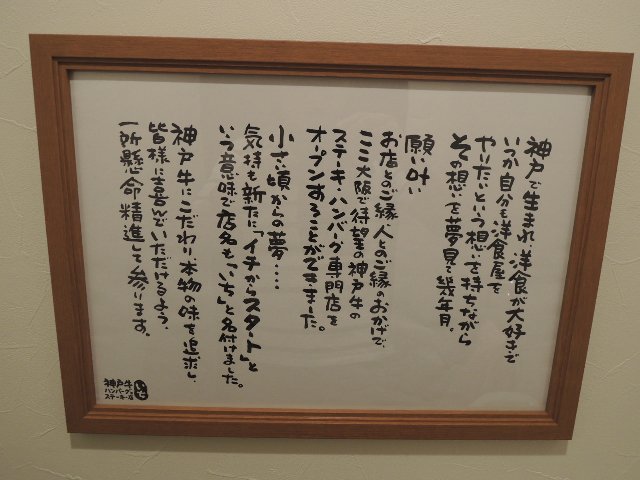 神戸で生まれ、洋食が大好きで
いつか自分も洋食屋を
やりたいという想いを持ちながら
その想いを夢見て幾年月。
願い叶い
お店とのご縁、人とのご縁のおかげで、
ここ大阪で待望の神戸牛の
ステーキ・ハンバーグ専門店を
オープンすることができました。
小さい頃からの夢・・・・
気持も新たに「イチからスタート」と
いう意味で店名も、「いち」と名付けました。
神戸牛にこだわり本物の味を追求し、
皆様に喜んでいただけるよう、
一所懸命精進して参ります。
神戸牛
ハンバーグと
ステーキの店
いち